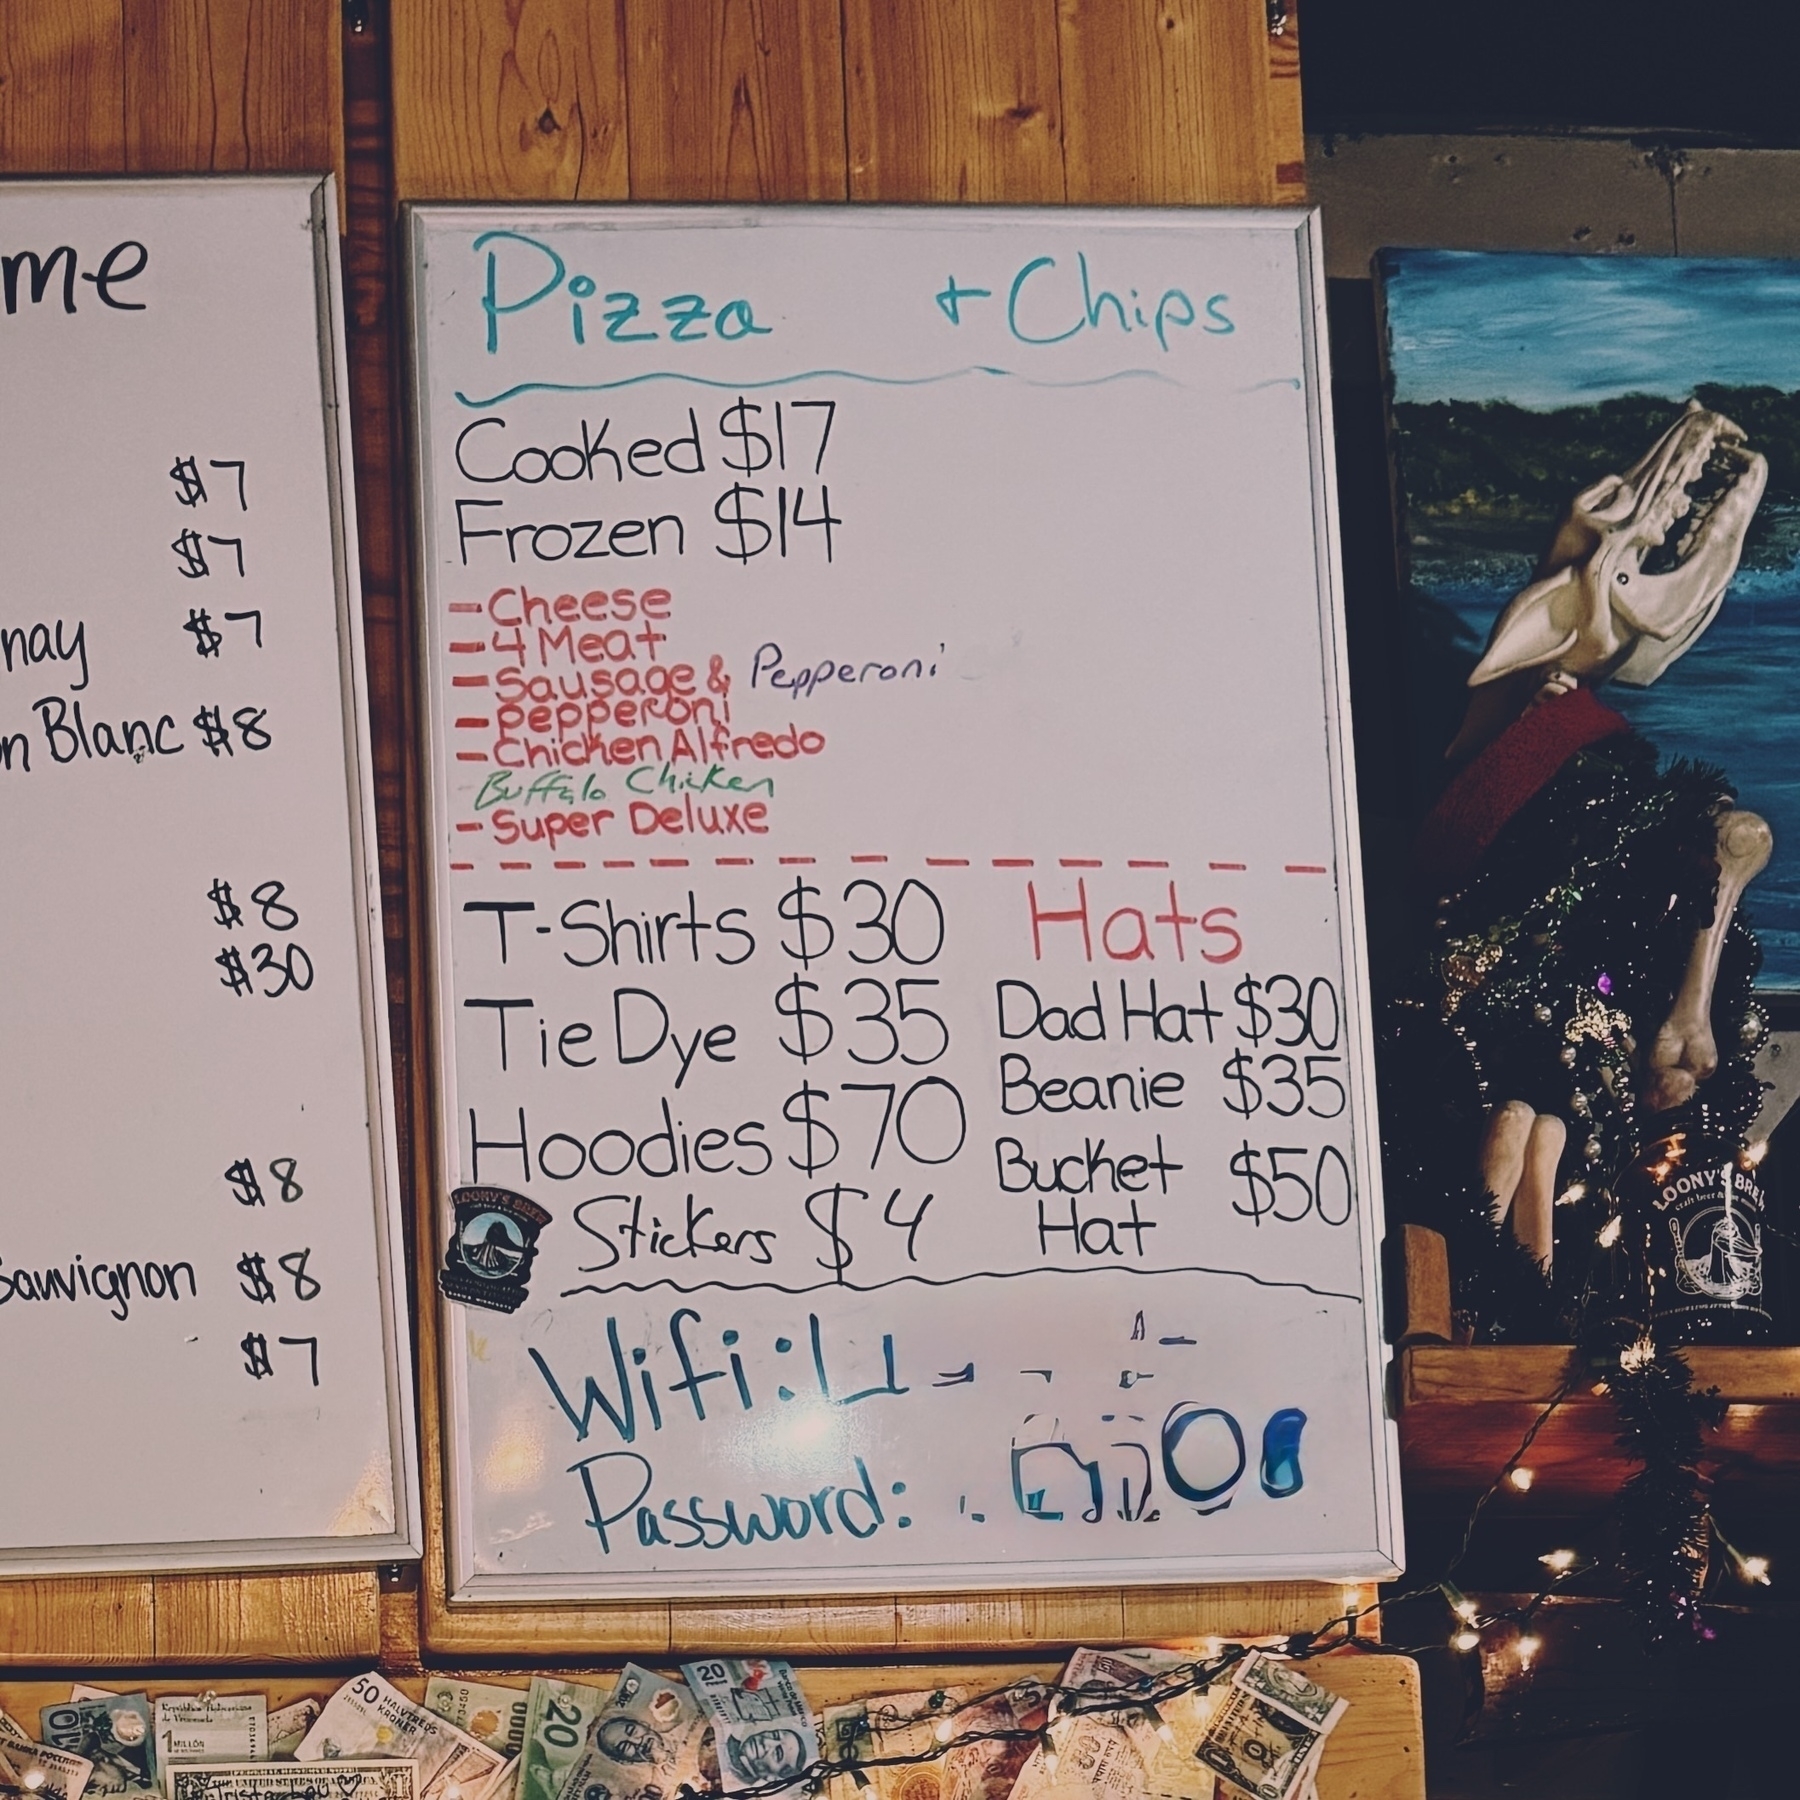 me
$7
$7
nay $7
on Blanc $8
$8
$30
$8
Sauvignon $8
$7
Pizza + Chips
Cooked $17
Frozen $14
- Cheese
- 4 Meat
- Sausage & Pepperoni
- Pepperoni
- Chicken Alfredo
Buffalo Chicken
- Super Deluxe
T-Shirts $30
Tie Dye $35
Hoodies $70
Stickers $4
Hats
Dad Hat $30
Beanie $35
Bucket Hat $50
LOONY'S BREW
Wifi:
Password:
LOONY'S BREW
craft beer &
10
1 MILLÓN
50 HALVTREDS
KRONER
20
20